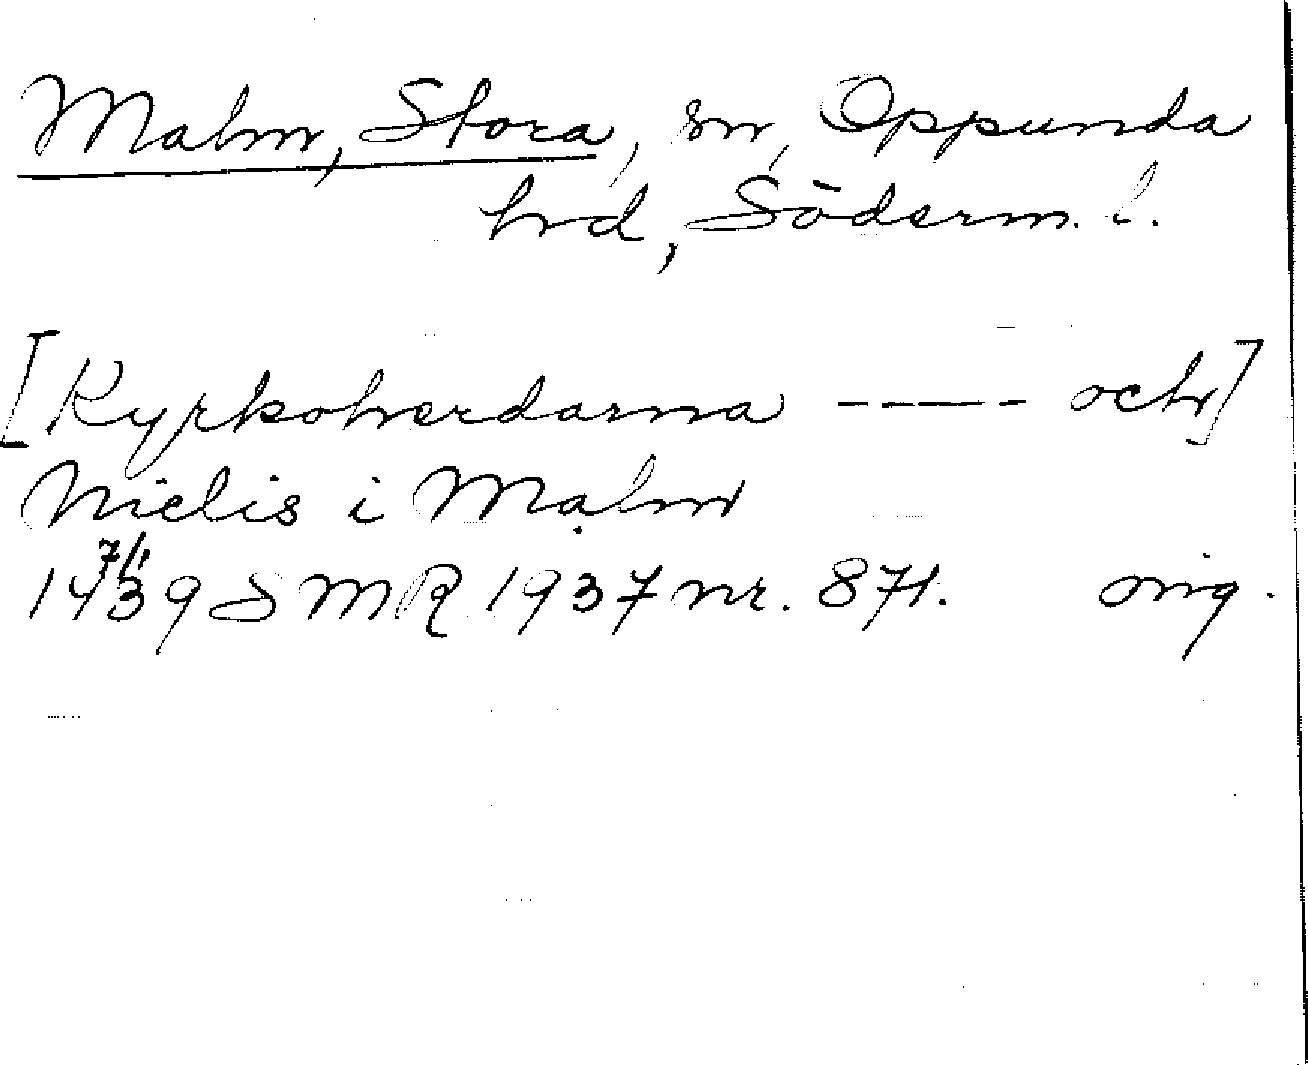 Malm, Stora, sn, Oppunda
hd, Söderm. l.
[Kyrkoherdarna ----- och]
Nielis i Malm
7/1
1439 SMR 1937 nr. 871. orig.